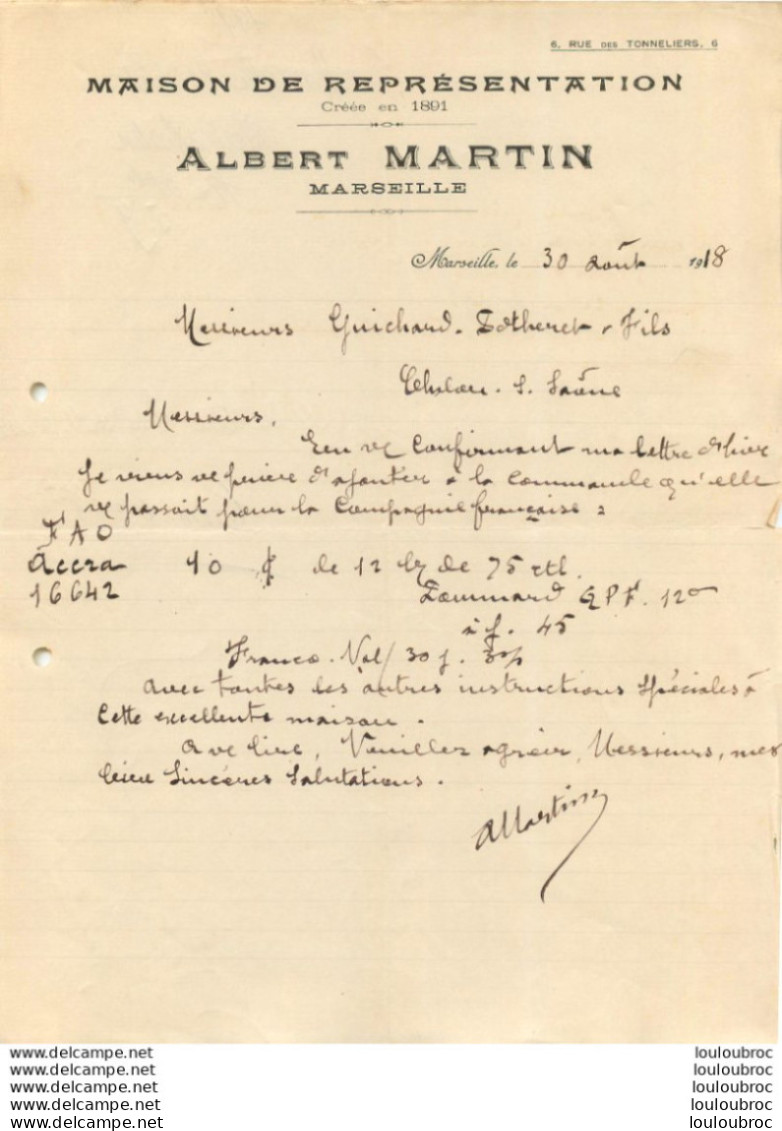 6, RUE DES TONNELIERS, 6
MAISON DE REPRÉSENTATION
Créée en 1891
ALBERT MARTIN
MARSEILLE
Marseille, le 30 août 1918
Messieurs Guichard-Potheret & Fils
Chalon. s. Saône
Messieurs,
En vs confirmant ma lettre d'hier
je viens vs prier d'ajouter à la commande qu'elle
vs passait pour la Compagnie française :
F A O
Accra 10 c/ de 12 de 75 ctl.
16642 Pommard G P F. 12
à f. 45
Franco. Val/ 30 j. 3%
avec toutes les autres instructions spéciales à
cette excellente maison.
A vs lire, Veuillez agréer, Messieurs, mes
bien sincères salutations.
AMartin
www.delcampe.net louloubroc
www.delcampe.net louloubroc
www.delcampe.net louloubroc
www.delcampe.net louloubroc
www.delcampe.net louloubroc